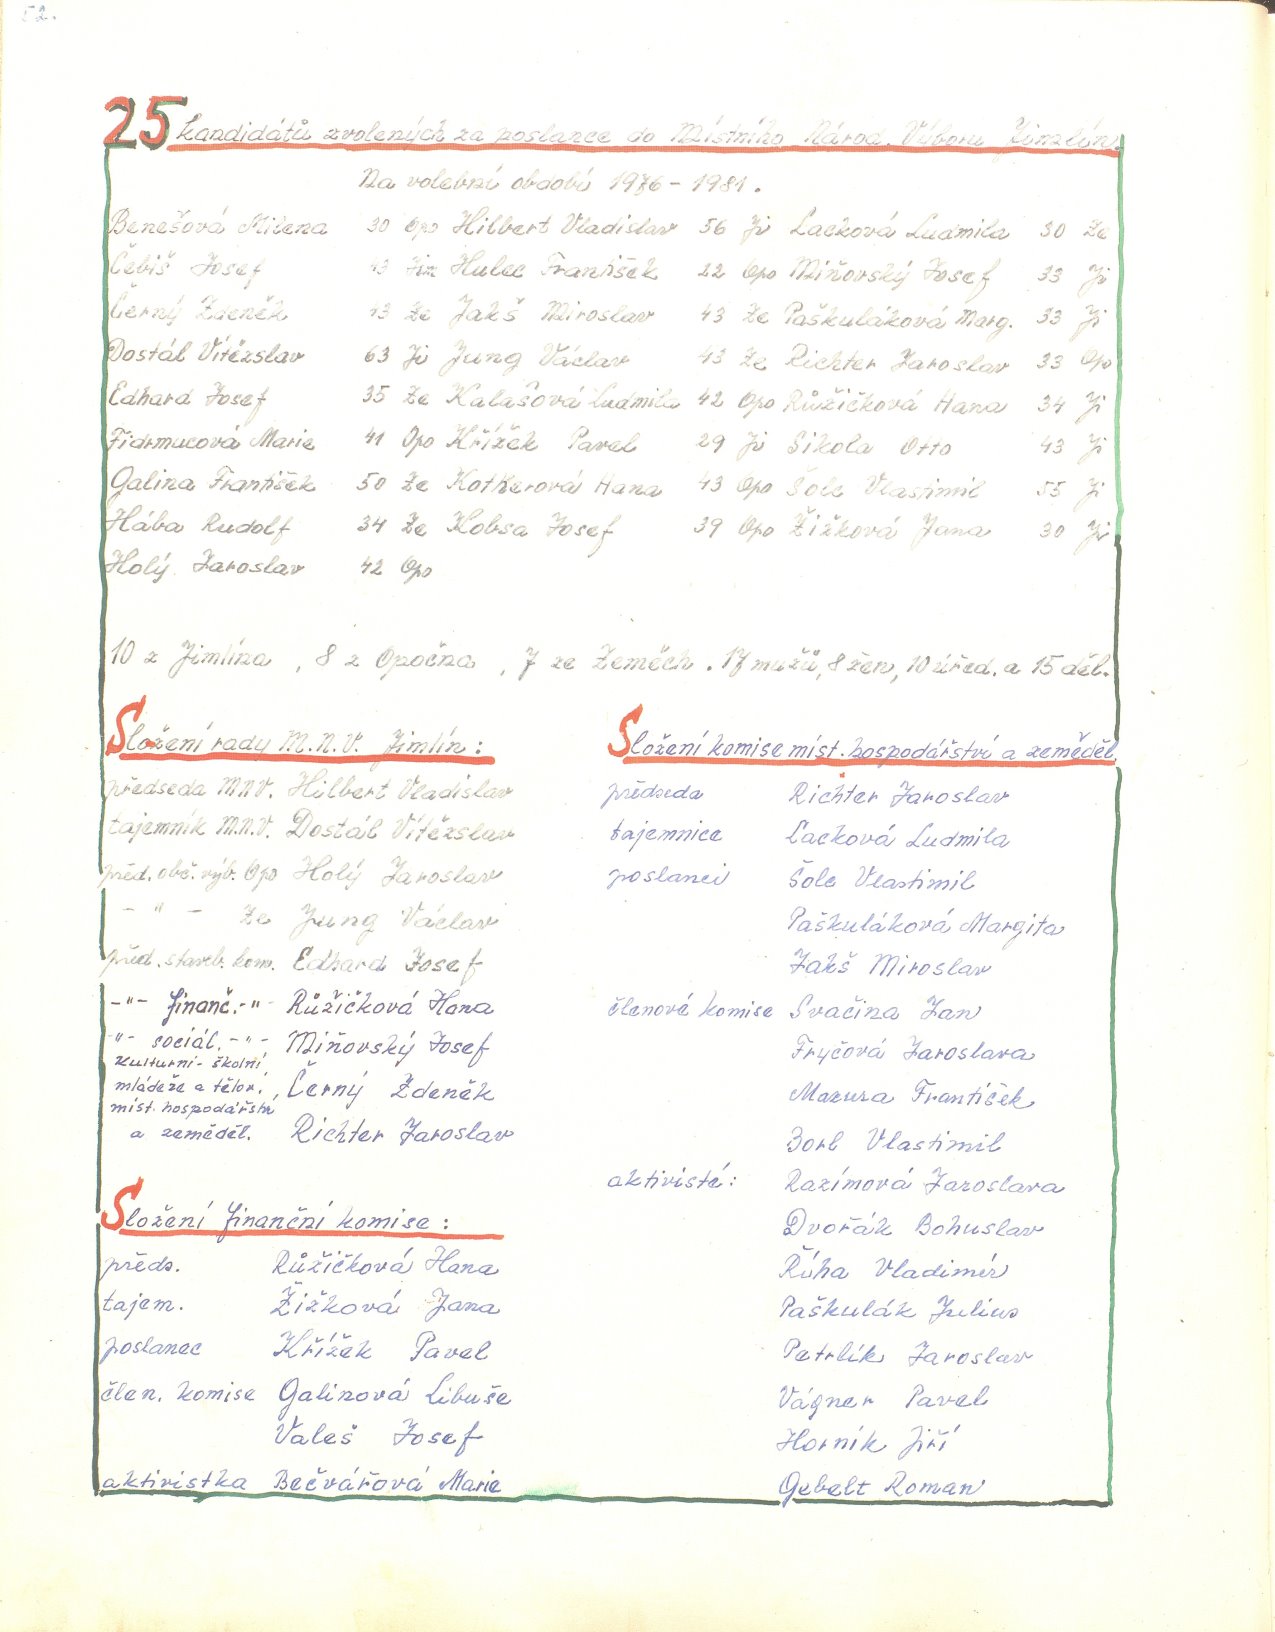 52.
25 kandidátů zvolených za poslance do Místního Národ. Výboru Jimlín.
Na volební období 1976 - 1981.
Benešová Milena 30 Opo Hilbert Vladislav 56 Ji Lacková Ludmila 30 Ze
Čebiš Josef 43 Jim Hulec František 22 Opo Miňovský Josef 33 Ji
Černý Zdeněk 43 Ze Jakš Miroslav 43 Ze Paškuláková Marg. 33 Ji
Dostál Vítězslav 63 Ji Jung Václav 43 Ze Richter Jaroslav 33 Opo
Edhard Josef 35 Ze Kalašová Ludmila 42 Opo Růžičková Hana 34 Ji
Fidrmucová Marie 41 Opo Křížek Pavel 29 Ji Sikola Otto 43 Ji
Galina František 50 Ze Kotkerová Hana 43 Opo Šolc Vlastimil 55 Ji
Hába Rudolf 34 Ze Kobsa Josef 39 Opo Žižková Jana 30 Ji
Holý Jaroslav 42 Opo
10 z Jimlína, 8 z Opočna, 7 ze Zeměch. 17 mužů, 8 žen, 10 úřed. a 15 děl.
Složení rady M.N.V. Jimlín:
předseda M.N.V. Hilbert Vladislav
tajemník M.N.V. Dostál Vítězslav
před. obč. výb. Opo Holý Jaroslav
- " - Ze Jung Václav
před. staveb. kom. Edhard Josef
-"- finanč.-"- Růžičková Hana
-"- sociál.-"- Miňovský Josef
kulturní - školní
mládeže a tělov., Černý Zdeněk
míst. hospodářství
a zeměděl. Richter Jaroslav
Složení finanční komise:
předs. Růžičková Hana
tajem. Žižková Jana
poslanec Křížek Pavel
člen. komise Galinová Libuše
Valeš Josef
aktivistka Bečvářová Marie
Složení komise míst. hospodářství a zeměděl.
předseda Richter Jaroslav
tajemnice Lacková Ludmila
poslanci Šolc Vlastimil
Paškuláková Margita
Jakš Miroslav
členové komise Svačina Jan
Fryčová Jaroslava
Mazura František
Borl Vlastimil
aktivisté: Razímová Jaroslava
Dvořák Bohuslav
Říha Vladimír
Paškulák Julius
Petrlík Jaroslav
Vágner Pavel
Horník Jiří
Gebelt Roman